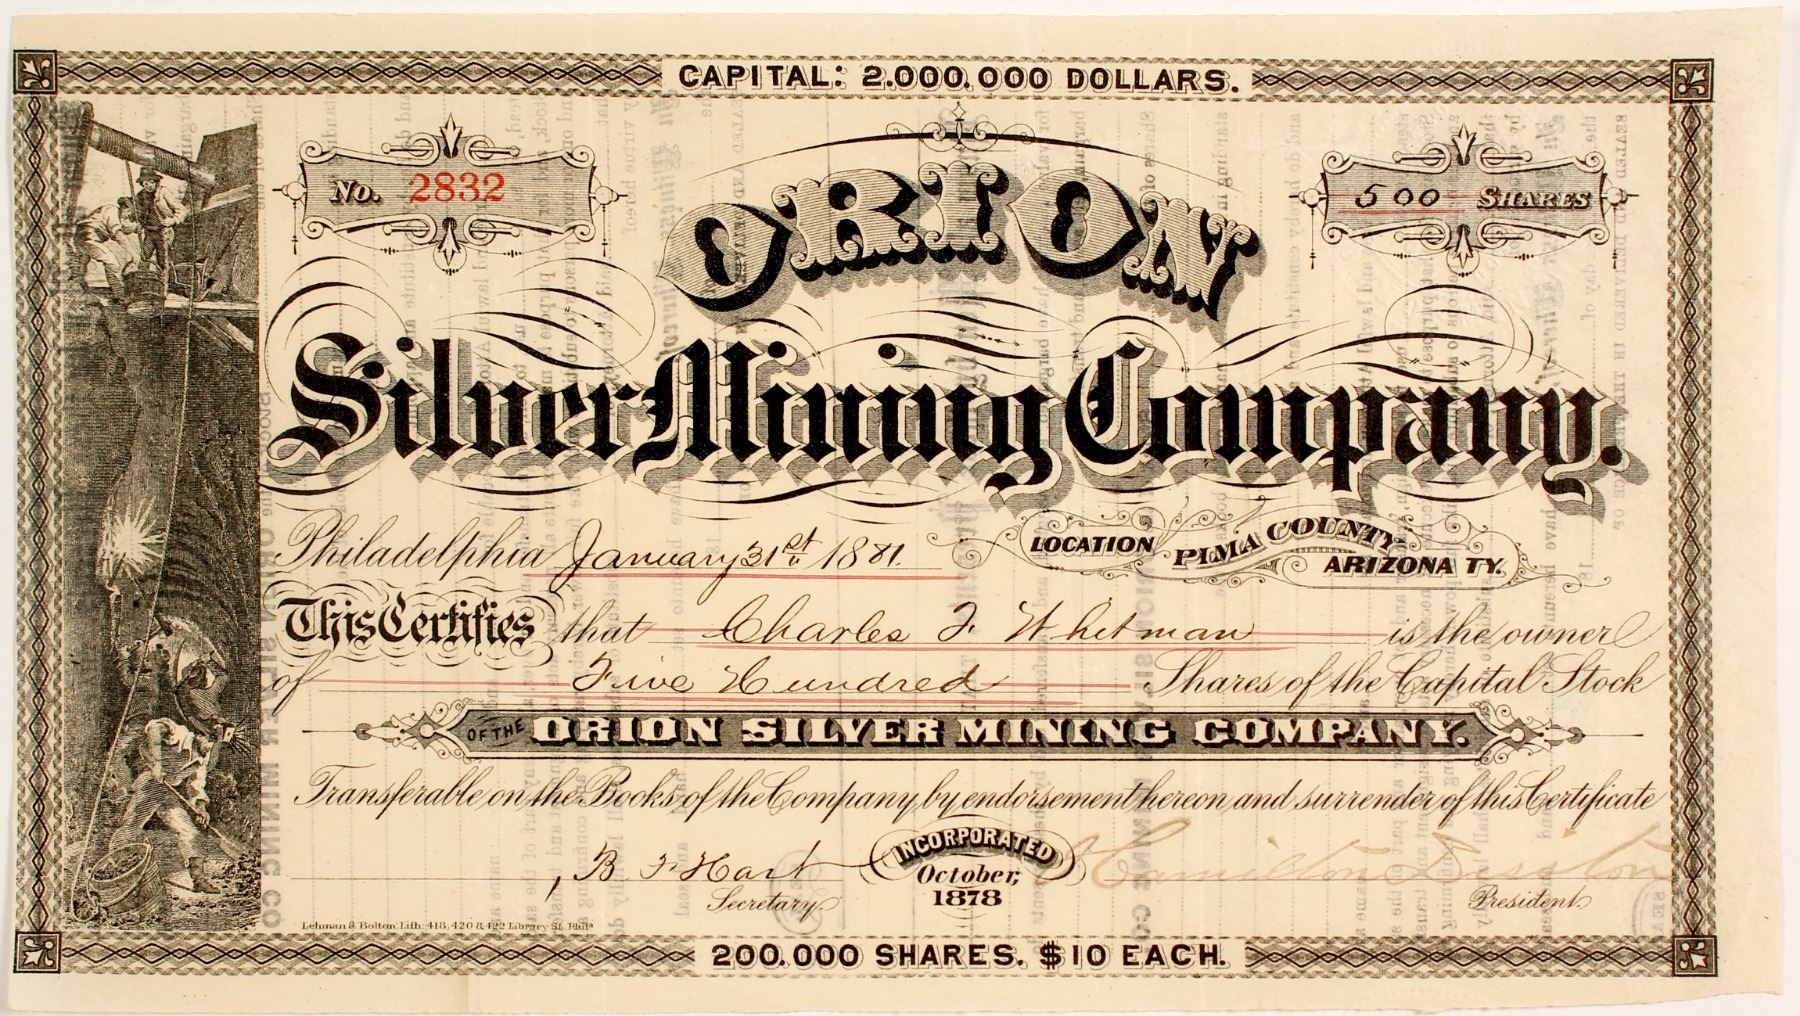 CAPITAL: 2.000.000 DOLLARS.
No. 2832
500 SHARES
ORION
Silver Mining Company.
Philadelphia January 31st 1881.
LOCATION PIMA COUNTY ARIZONA TY.
This Certifies that Charles F Whitman is the owner
of Five Hundred Shares of the Capital Stock
OF THE ORION SILVER MINING COMPANY.
Transferable on the Books of the Company by endorsement hereon and surrender of this Certificate
B F Hart
Secretary.
INCORPORATED
October,
1878
Hamilton Disston
President.
Lehman & Bolton, Lith: 418, 420 & 422 Library St. Phila
200.000 SHARES. $10 EACH.